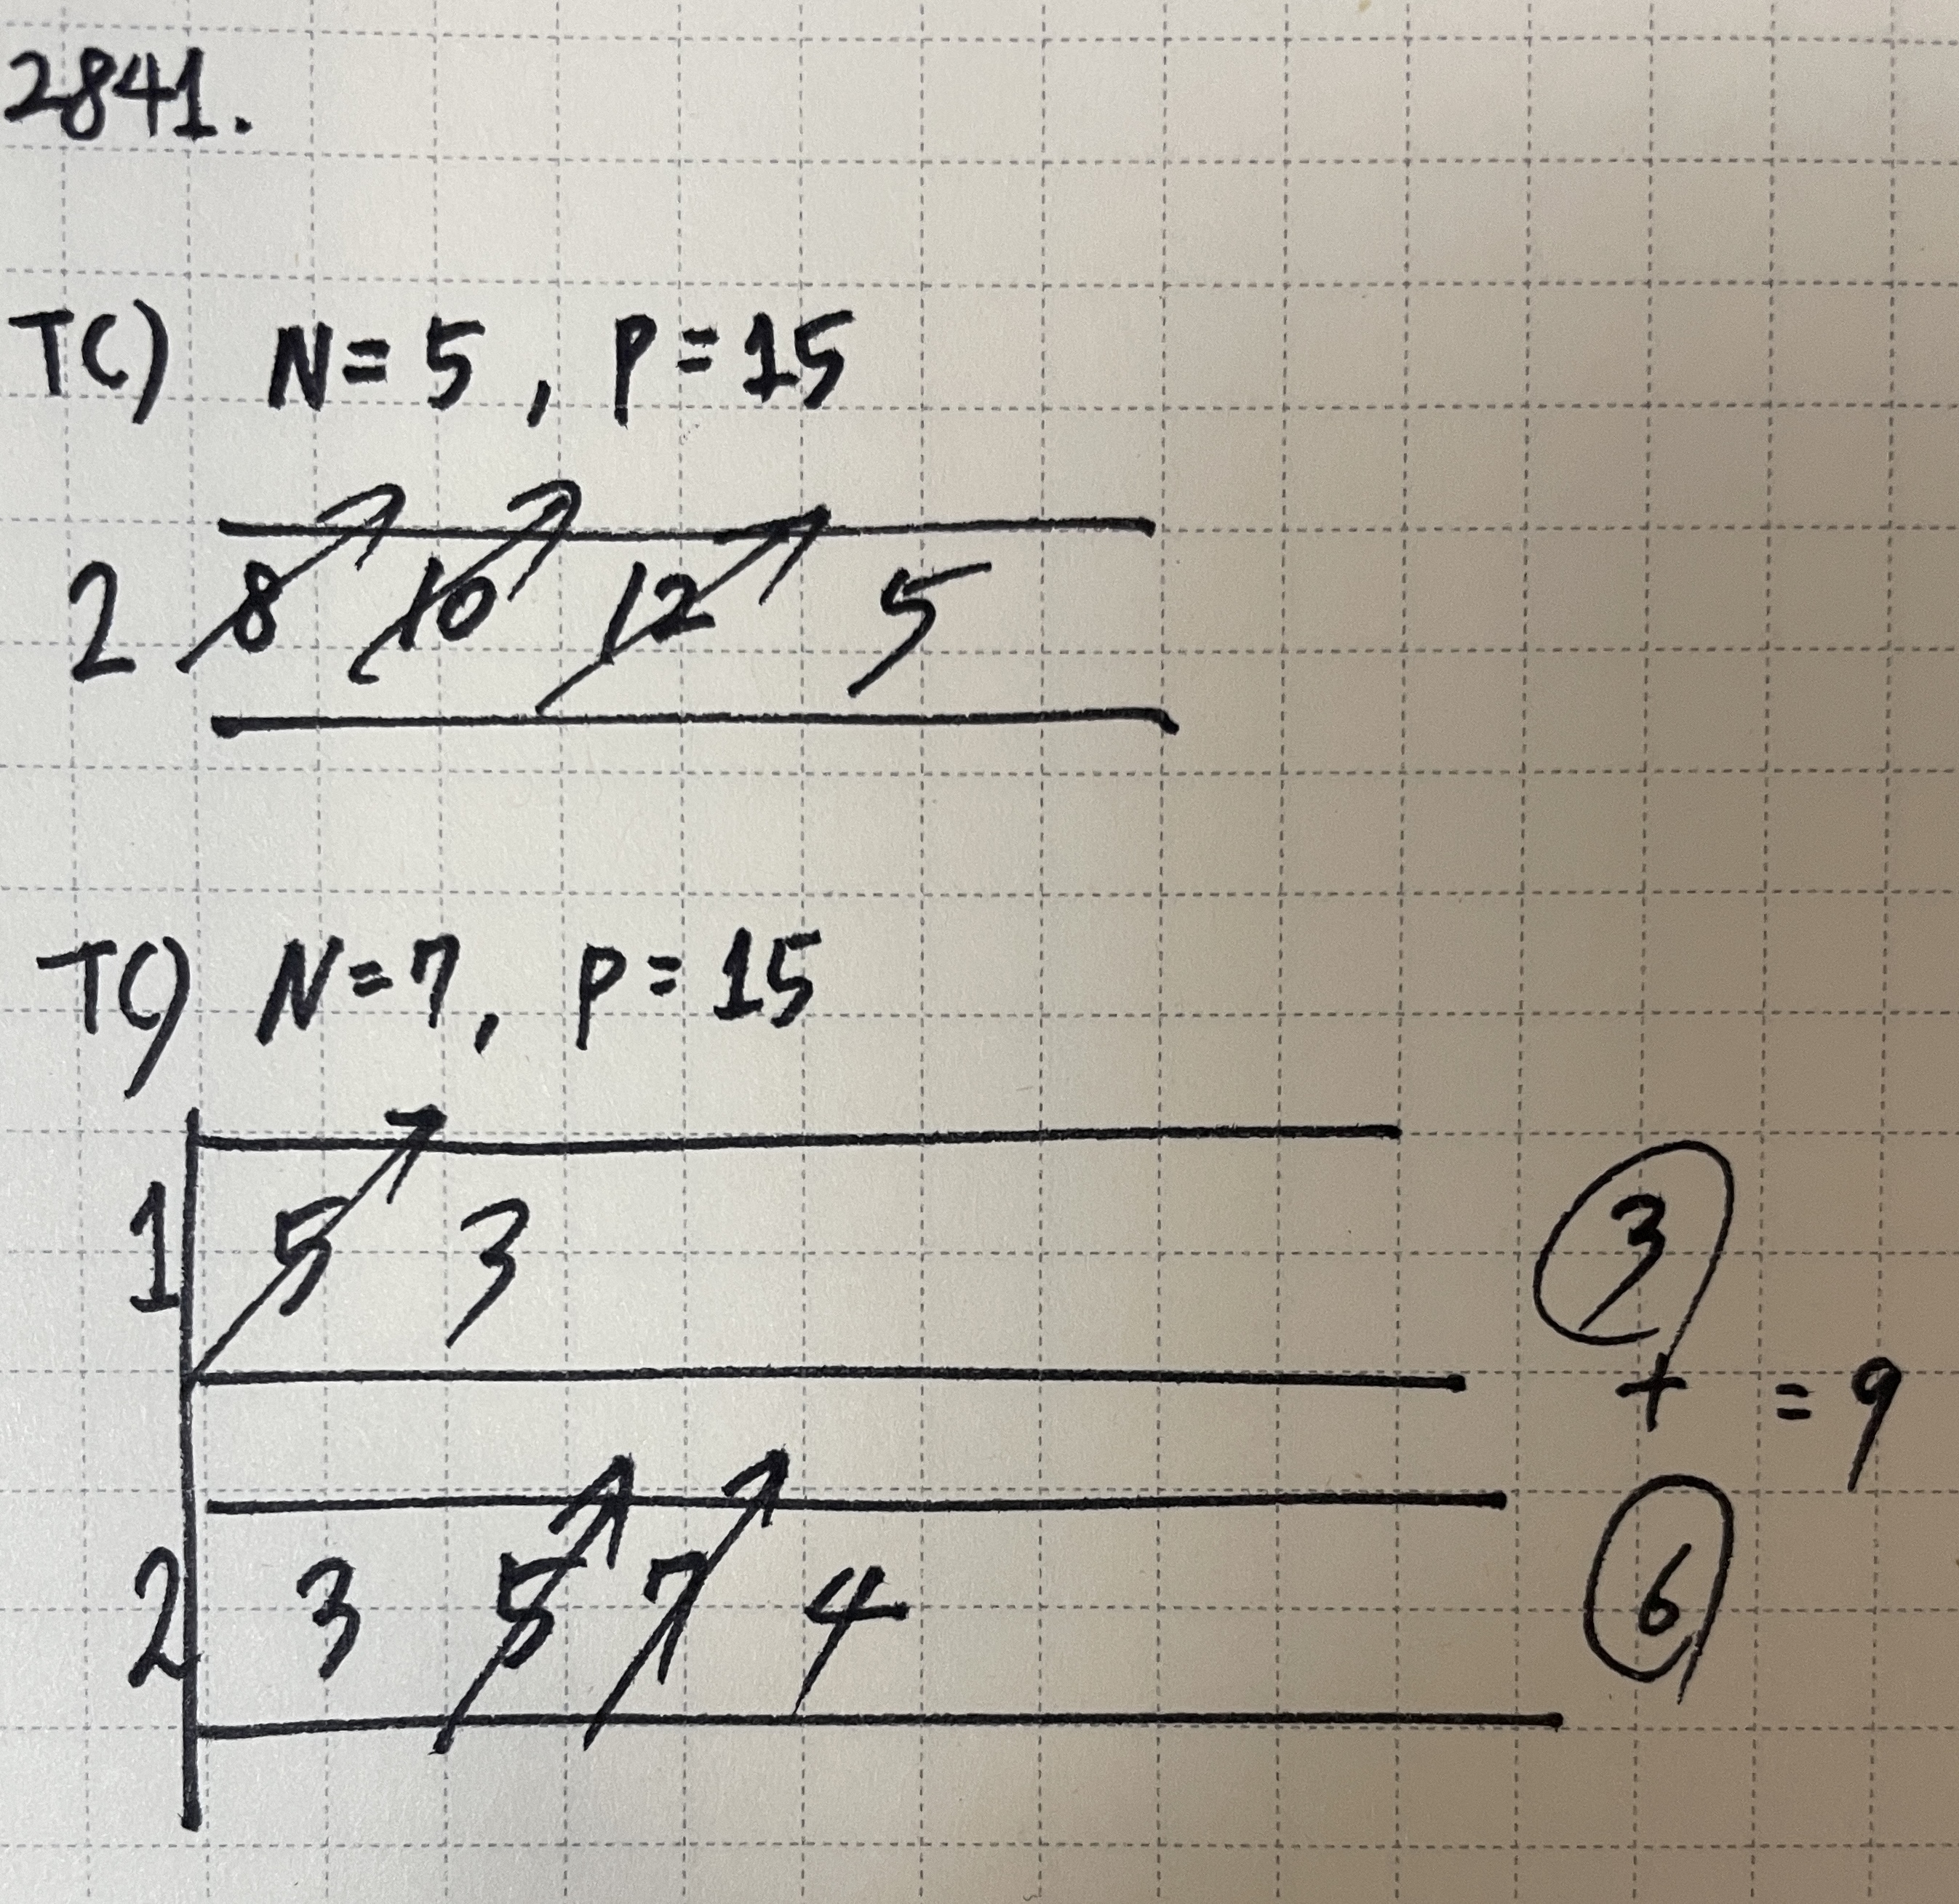 2841.
TC) N=5, P=15
2 8 10 12 5
TC) N=7, P=15
1 5 3 3
+ = 9
2 3 5 7 4 6